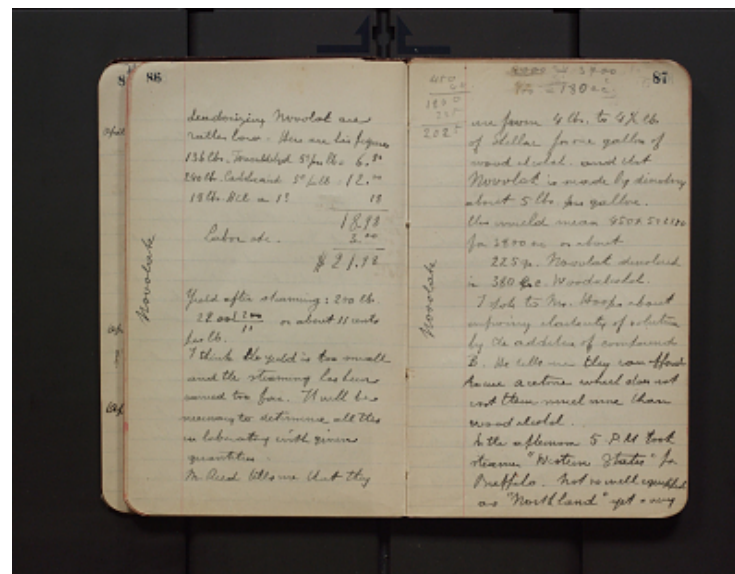 86
deodorizing Novolak are
rather low. Here are his figures
136 lbs. 5¢ per lb = 6.80
240 lb. Carbolic acid 5¢ p lb = 12.00
18 lbs. HCl a 1¢ 18
18.98
Labor etc. 3.00
$ 21.98
Novolak
Yield after steaming: 200 lb.
2200 | 200
11 or about 11 cents
per lb.
I think the yield is too small
and the steaming has been
carried too far. It will be
necessary to determine all this
in laboratory with given
quantities.
Mr Aced tells me that they
87
450
1800
225
2025
= 180 cc
use from 4 lbs. to 4½ lb
of shellac for one gallon of
wood alcohol. and that
Novolak is made by dissolving
about 5 lbs. per gallon.
this would mean 450 x 5 =
for 3800 cc or about
225 gr. Novolak dissolved
in 380 c.c. Wood alcohol.
Novolak
I spoke to Mr. Hoops about
improving elasticity of solution
by the addition of compound
B. He tells me they can afford
to use acetone which does not
cost them much more than
wood alcohol.
In the afternoon 5 P.M. took
steamer "Western States" for
Buffalo. Not so well equipped
as "Northland" yet a very